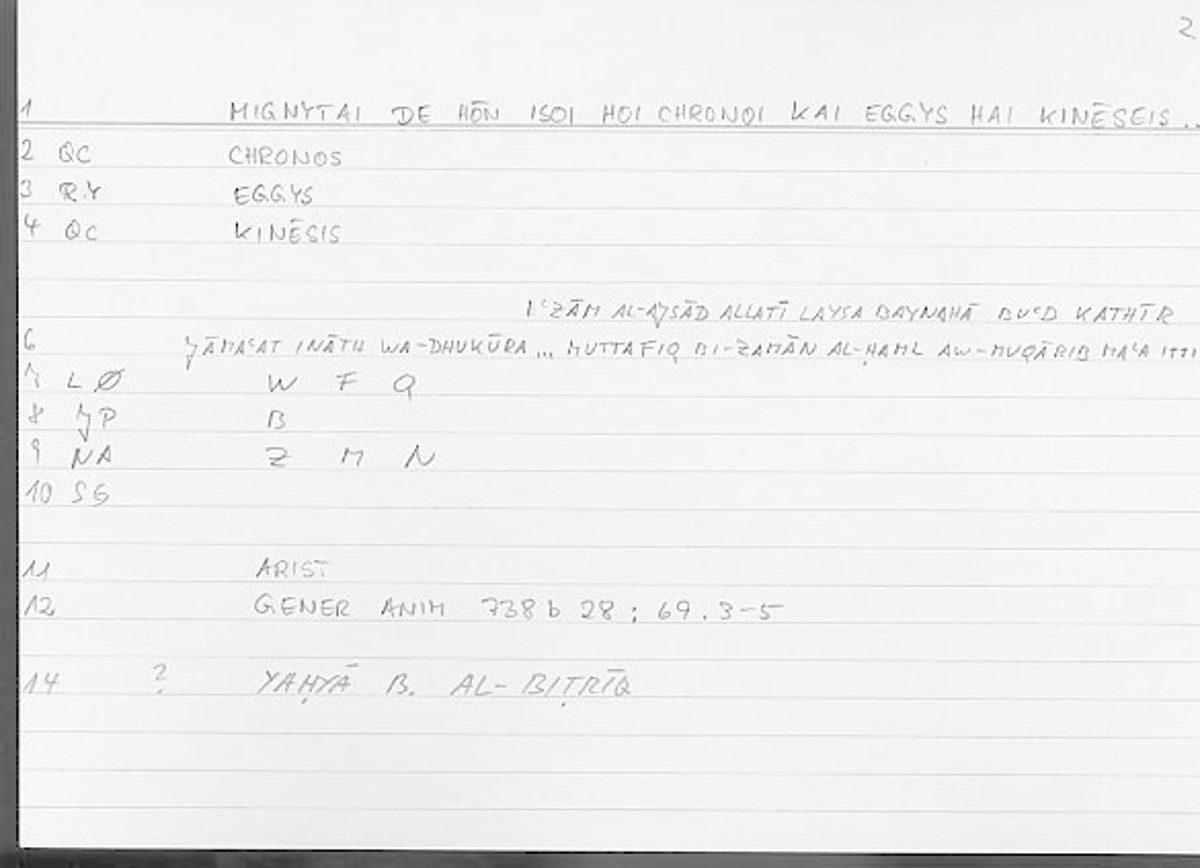 2
1 MIGNYTAI DE HŌN ISOI HOI CHRONOI KAI EGGYS HAI KINĒSEIS ..
2 QC CHRONOS
3 RY EGGYS
4 QC KINĒSIS
IʿẒĀM AL-AJSĀD ALLATĪ LAYSA BAYNAHĀ BUʿD KATHĪR
6 JĀMAʿAT INĀTH WA-DHUKŪRA ... MUTTAFIQ BI-ZAMĀN AL-ḤAML AW-MUQĀRIB MAʿA ITTI
7 LØ W F Q
8 JP B
9 NA Z M N
10 SG
11 ARIST
12 GENER ANIM 738 b 28 ; 69.3-5
14 ? YAḤYĀ B. AL-BIṬRĪQ